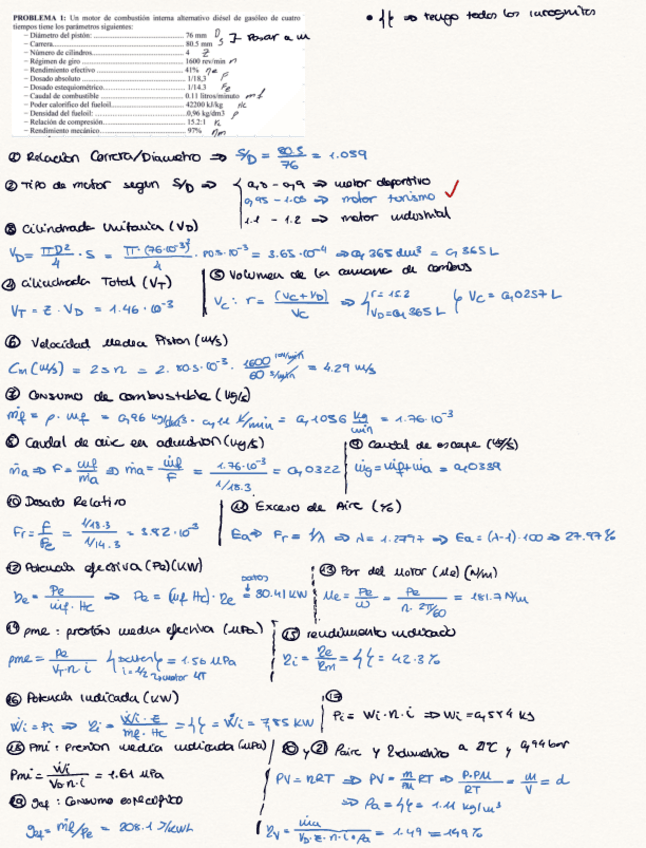 PROBLEMA 1: Un motor de combustión interna alternativo diésel de gasóleo de cuatro
tiempos tiene los parámetros siguientes:
– Diámetro del pistón: 76 mm D
– Carrera 80.5 mm S } Pasar a m
– Número de cilindros 4 Z
– Régimen de giro 1600 rev/min n
– Rendimiento efectivo 41% ηe
– Dosado absoluto 1/18.3 F
– Dosado estequiométrico 1/14.3 Fe
– Caudal de combustible 0.11 litros/minuto ṁf
– Poder calorífico del fueloil 42200 kJ/kg Hc
– Densidad del fueloil: 0,96 kg/dm3 ρ
– Relación de compresión 15.2:1 r
– Rendimiento mecánico 97% ηm
• {{ => tengo todas las incognitas
① Relación Carrera/Diametro => S/D = 80.5/76 = 1.059
② Tipo de motor segun S/D => 0,8 - 0,9 => motor deportivo
0,95 - 1.05 => motor turismo ✓
1.1 - 1.2 => motor industrial
③ Cilindrada Unitaria (VD)
VD = πD²/4 · S = π·(76·10⁻³)²/4 · 80.5·10⁻³ = 3.65·10⁻⁴ => 0,365 dm³ = 0,365 L
④ Cilindrada Total (VT)
VT = Z · VD = 1.46·10⁻³
⑤ Volumen de la camara de combus
Vc : r = (Vc+VD)/Vc => { r = 15.2 VD = 0,365 L } Vc = 0,0257 L
⑥ Velocidad Media Piston (m/s)
Cm (m/s) = 2 S n = 2 · 80.5·10⁻³ · 1600 rev/min / 60 s/min = 4.29 m/s
⑦ Consumo de combustible (kg/s)
ṁf = ρ · ṁf = 0,96 kg/dm³ · 0,11 l/min = 0,1056 kg/min = 1.76·10⁻³
⑧ Caudal de aire en admision (kg/s)
ṁa => F = ṁf/ṁa => ṁa = ṁf/F = 1.76·10⁻³ / 1/18.3 = 0,0322
⑨ Caudal de escape (kg/s)
ṁg = ṁf + ṁa = 0,0339
⑩ Dosado Relativo
Fr = F/Fe = 1/18.3 / 1/14.3 = 3.82·10⁻³
⑪ Exceso de Aire (%)
Ea => Fr = 1/λ => λ = 1.2797 => Ea = (λ-1)·100 => 27.97%
⑫ Potencia efectiva (Pe) (KW)
ηe = Pe / ṁf·Hc => Pe = (ṁf·Hc)·ηe = 30.41 KW
datos
⑬ Par del Motor (Me) (N/m)
Me = Pe/ω = Pe / n·2π/60 = 181.7 N/m
⑭ pme : presión media efectiva (MPa)
pme = Pe / VT·n·i {{ = 1.56 MPa
i = 1/2 motor 4T
⑮ rendimiento indicado
ηi = ηe/ηm = {{ = 42.3%
⑯ Potencia indicada (KW)
⑰
Pi = Wi·n·i => Wi = 0,584 kJ
⑱ Pmi : Presion media indicada (MPa)
Pmi = Wi / VD·n·i = 1.61 MPa
⑲ gef : Consumo especifico
gef = ṁf/Pe = 208.1
PV = nRT => PV = m/PM RT => P·PM/RT = m/V = d
=> ρa = {{ = 1.11 kg/m³
ηv = ṁa / VD·Z·n·i·ρa = 1.49 = 149%